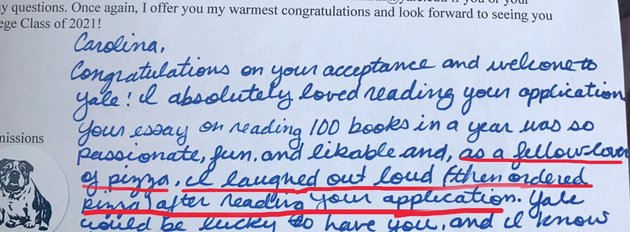 y questions. Once again, I offer you my warmest congratulations and look forward to seeing you
ege Class of 2021!
Carolina,
Congratulations on your acceptance and welcome to
Yale! I absolutely loved reading your application
Your essay on reading 100 books in a year was so
missions
passionate, fun, and likable and, as a fellow lover
of pizza, I laughed out loud (then ordered
pizza) after reading your application. Yale
would be lucky to have you, and I know